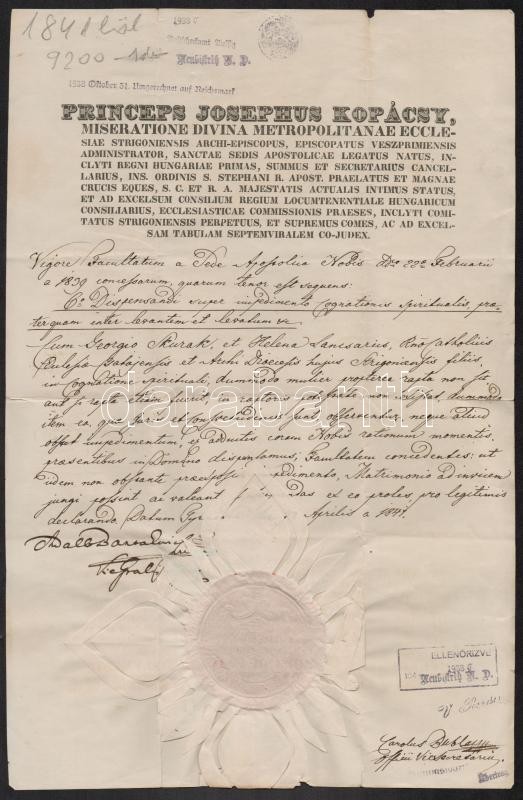 1841
9200
1938
1938 Oktober 31. Umgerechnet auf Reichsmark
PRINCEPS JOSEPHUS KOPÁCSY,
MISERATIONE DIVINA METROPOLITANAE ECCLE-
SIAE STRIGONIENSIS ARCHI-EPISCOPUS, EPISCOPATUS VESZPRIMIENSIS
ADMINISTRATOR, SANCTAE SEDIS APOSTOLICAE LEGATUS NATUS, IN-
CLYTI REGNI HUNGARIAE PRIMAS, SUMMUS ET SECRETARIUS CANCEL-
LARIUS, INS. ORDINIS S. STEPHANI R. APOST. PRAELATUS ET MAGNAE
CRUCIS EQUES, S. C. ET R. A. MAJESTATIS ACTUALIS INTIMUS STATUS,
ET AD EXCELSUM CONSILIUM REGIUM LOCUMTENENTIALE HUNGARICUM
CONSILIARIUS, ECCLESIASTICAE COMMISSIONIS PRAESES, INCLYTI COMI-
TATUS STRIGONIENSIS PERPETUUS, ET SUPREMUS COMES, AC AD EXCEL-
SAM TABULAM SEPTEMVIRALEM CO-JUDEX.
Vigore Facultatum a Sede Apostolica Nobis Februarii
a 1839 concessarum, quarum tenor est sequens:
6o Dispensandi super impedimento Cognationis Spiritualis, prae-
terquam inter levantem et levatum
Cum Georgio Skurak, et Helena Lancsarius,
et Archi Dioecesis hujus Strigoniensis filiis,
in Cognatione spirituali, dummodo mulier propterea rapta non sit
aut si rapta etiam fuerit, in raptoris potestate non existat, dummodo
item ea, quae juris et consvetudinis sunt, observentur, neque aliud
obstet impedimentum, ex adductis coram Nobis rationum momentis,
praesentibus in Domino dispensamus, Facultatem concedentes: ut
iidem non obstante praeexposito impedimento, Matrimonio ad invicem
jungi possint ac valeant ex eo proles, pro legitimis
declarando Datum Tyr Aprilis a 1841.
darabanth
ELLENŐRIZVE
1938
Neubistritz N. D.
Carolus